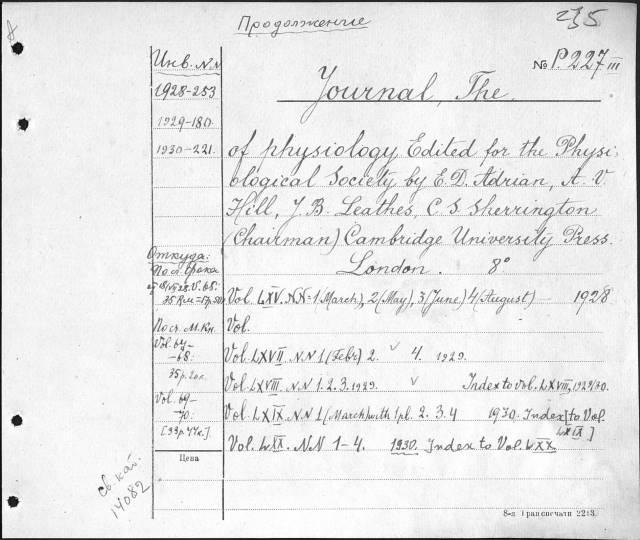 Продолжение
235
Инв. №№
№ P.227 III
Journal, The
1928-253
1929-180
1930-221
of physiology Edited for the Physi-
ological Society by E.D. Adrian, A. V.
Hill, J. B. Leathes, C. S. Sherrington
(Chairman) Cambridge University Press.
London. 8°
Откуда:
35 R.м.=17р.50
Vol. LXV. NN=1 (March), 2 (May), 3 (June) 4 (August) — 1928
Посл. М. Кн.
Vol.
Vol. 67-
-68:
Vol. LXVII. NN 1 (Febr) 2. ✓ 4. 1929.
35р.20к.
Vol. LXVIII. NN 1. 2. 3. 1929. ✓ Index to vol. LXVIII, 1929/30.
Vol. 69-
-70:
Vol LXIX NN 1 (March) with 1 pl. 2. 3. 4 1930. Index [to Vol.
LXIX]
[33р.44к.]
Vol. LXX. NN 1-4. 1930. Index to Vol. LXX.
Цена
св. кат.
14082
8-я Гранспечати 2243.